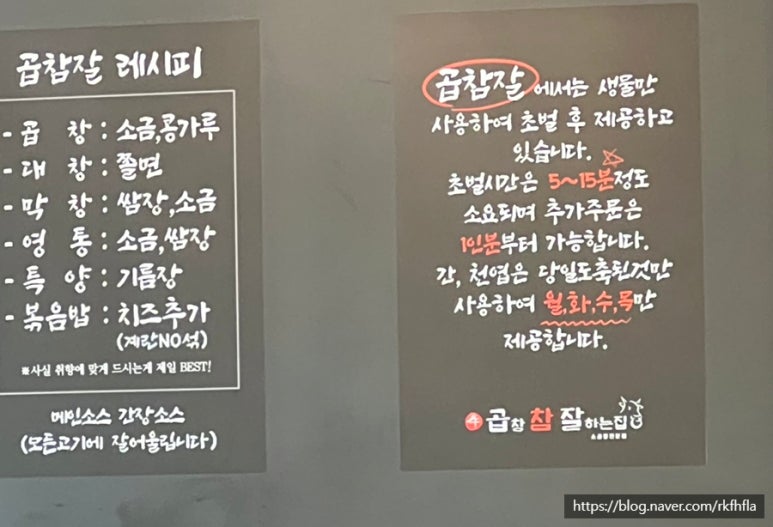 곱참잘 레시피
- 곱 창 : 소금,콩가루
- 대 창 : 쫄면
- 막 창 : 쌈장,소금
- 염 통 : 소금,쌈장
- 특 양 : 기름장
- 볶음밥 : 치즈추가
(계란NO석)
※사실 취향에 맞게 드시는게 제일 BEST!
메인소스 간장소스
(모든고기에 잘어울립니다)
곱참잘 에서는 생물만
사용하여 초벌 후 제공하고
있습니다.
초벌시간은 5~15분정도
소요되며 추가주문은
1인분부터 가능합니다.
간, 천엽은 당일도축된것만
사용하여 월,화,수,목만
제공합니다.
곱창 참 잘하는집
https://blog.naver.com/rkfhfla